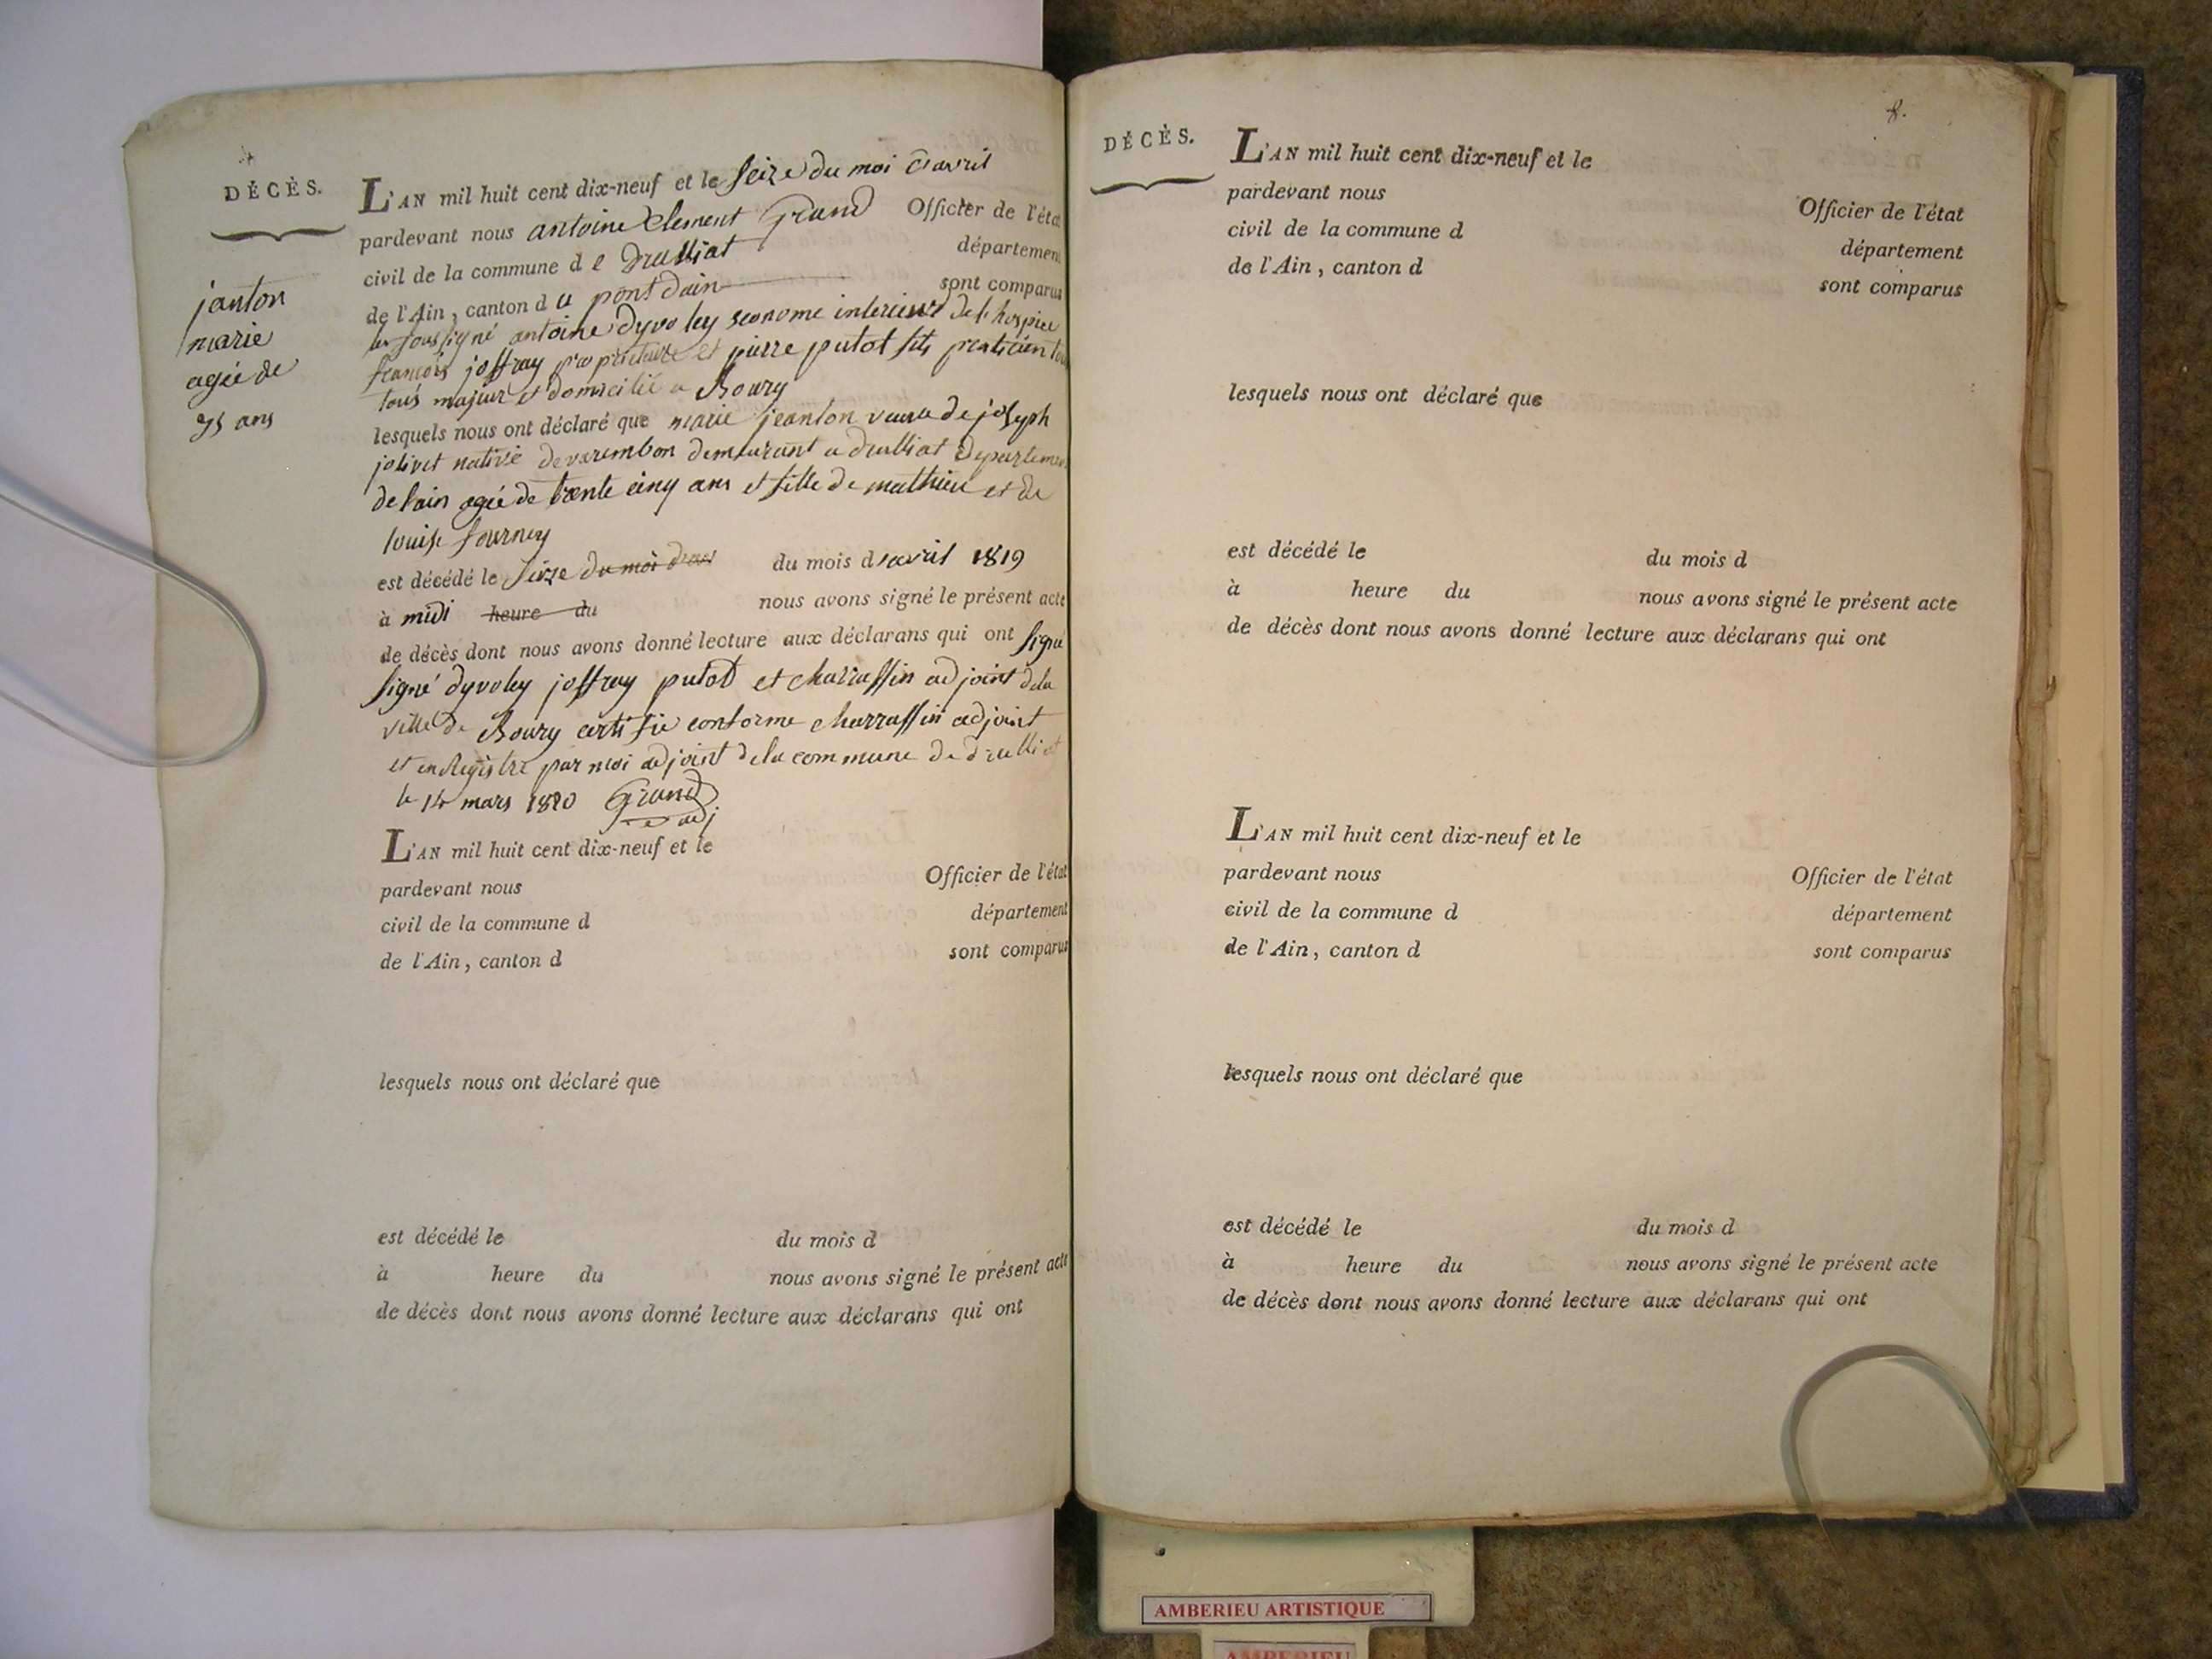 DÉCÈS.
janton
marie
agée de
35 ans
L'AN mil huit cent dix-neuf et le seize du moi d'avril
pardevant nous antoine Clement Grand Officier de l'état
civil de la commune d e druilliat département
de l'Ain, canton d u pont dain sont comparus
les soussigné antoine dyvoley econome interieur de l'hospice
francois joffray proprietaire et pierre putot fils praticien
tous majeur et domicilié a Bourg
lesquels nous ont déclaré que marie jeanton veuve de joseph
jolivet native de varembon demeurant a druilliat departement
de lain agée de trente cinq ans et fille de mathieu et de
louise fourney
est décédé le seize du moi davril du mois d avril 1819
à midi heure du nous avons signé le présent acte
de décès dont nous avons donné lecture aux déclarans qui ont signé
signé dyvoley joffray putod et charrassin adjoint dela
ville de Bourg certifié conforme charrassin adjoint
et enregistré par moi adjoint dela commune de druilliat
le 14 mars 1820 Grand
adj
L'AN mil huit cent dix-neuf et le
pardevant nous Officier de l'état
civil de la commune d département
de l'Ain, canton d sont comparus
lesquels nous ont déclaré que
est décédé le du mois d
à heure du nous avons signé le présent acte
de décès dont nous avons donné lecture aux déclarans qui ont
8.
DÉCÈS.
L'AN mil huit cent dix-neuf et le
pardevant nous Officier de l'état
civil de la commune d département
de l'Ain, canton d sont comparus
lesquels nous ont déclaré que
est décédé le du mois d
à heure du nous avons signé le présent acte
de décès dont nous avons donné lecture aux déclarans qui ont
L'AN mil huit cent dix-neuf et le
pardevant nous Officier de l'état
civil de la commune d département
de l'Ain, canton d sont comparus
lesquels nous ont déclaré que
est décédé le du mois d
à heure du nous avons signé le présent acte
de décès dont nous avons donné lecture aux déclarans qui ont
AMBERIEU ARTISTIQUE
AMBERIEU